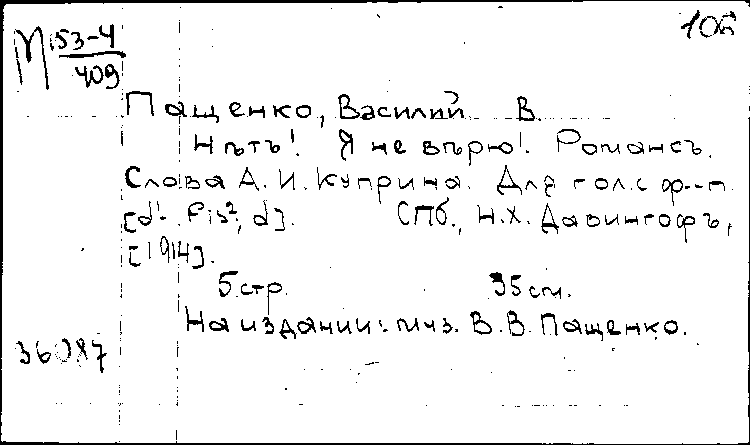 М 53-4
409
106
Пащенко, Василий В.
Нѣтъ! Я не вѣрю! Романсъ.
Слова А. И. Куприна. Для гол. с ф.-п.
[d¹- fis², d]. СПб., Н.Х. Давингофъ,
[1914].
5 стр. 35 см.
На издании: муз. В. В. Пащенко.
36087